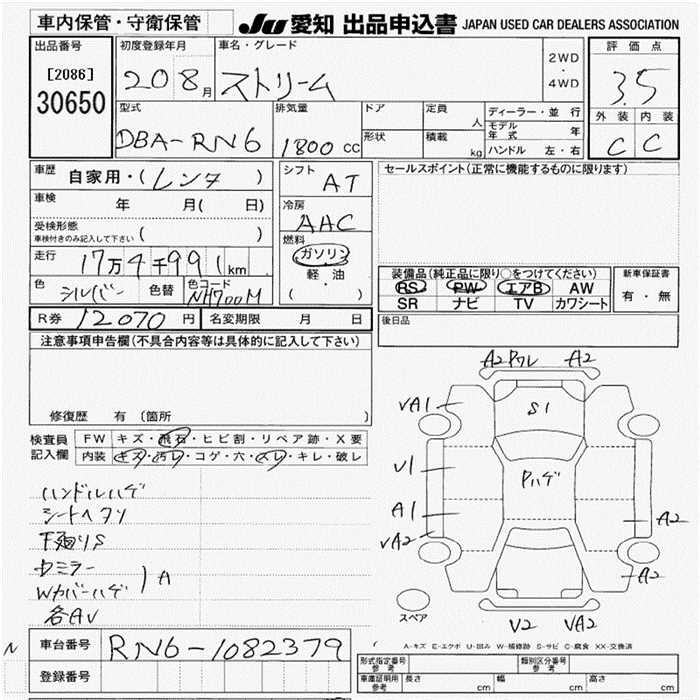 車内保管・守衛保管
JU 愛知 出品申込書 JAPAN USED CAR DEALERS ASSOCIATION
出品番号
[2086]
30650
初度登録年月
20 8月
車名・グレード
ストリーム
2WD
・
4WD
評価点
3.5
外装 内装
C C
型式
DBA-RN6
排気量
1800 cc
ドア
形状
定員
人
積載
kg
ディーラー・並行
モデル年式 年
ハンドル 左・右
車歴
自家用・(レンタ)
車検
年 月( 日)
受検形態
車検付きのみ記入して下さい ( )
走行
17万4千991km
色
シルバー
色替
色コード
NH700M
シフト
AT
冷房
AAC
燃料
ガソリン
軽・油
( )
セールスポイント(正常に機能するものに限ります)
装備品(純正品に限り○をつけてください)
RS PW エアB AW
SR ナビ TV カワシート
新車保証書
有・無
後日品
R券 12070円
名変期限 月 日
注意事項申告欄(不具合内容等は具体的に記入して下さい)
修復歴 有 (箇所 )
検査員
記入欄
FW キズ・飛石・ヒビ割・リペア跡・X要
内装 キズ・汚レ・コゲ・穴・スレ・キレ・破レ
ハンドルハゲ
シートヘタリ
下廻りS
中ミラー
Wカバーハゲ
A
各AV
A2 Pワレ A2
VA1
S1
U1
Pハゲ
A1
VA2
A2
A2
V2 VA2
スペア
A-キズ E-エクボ U-凹み W-補修跡 S-サビ C-腐食 XX-交換済
N
車台番号
RN6-1082379
登録番号
型式指定番号
参考
類別区分番号
参考
車庫証明用
参考
長さ cm
幅 cm
高さ cm